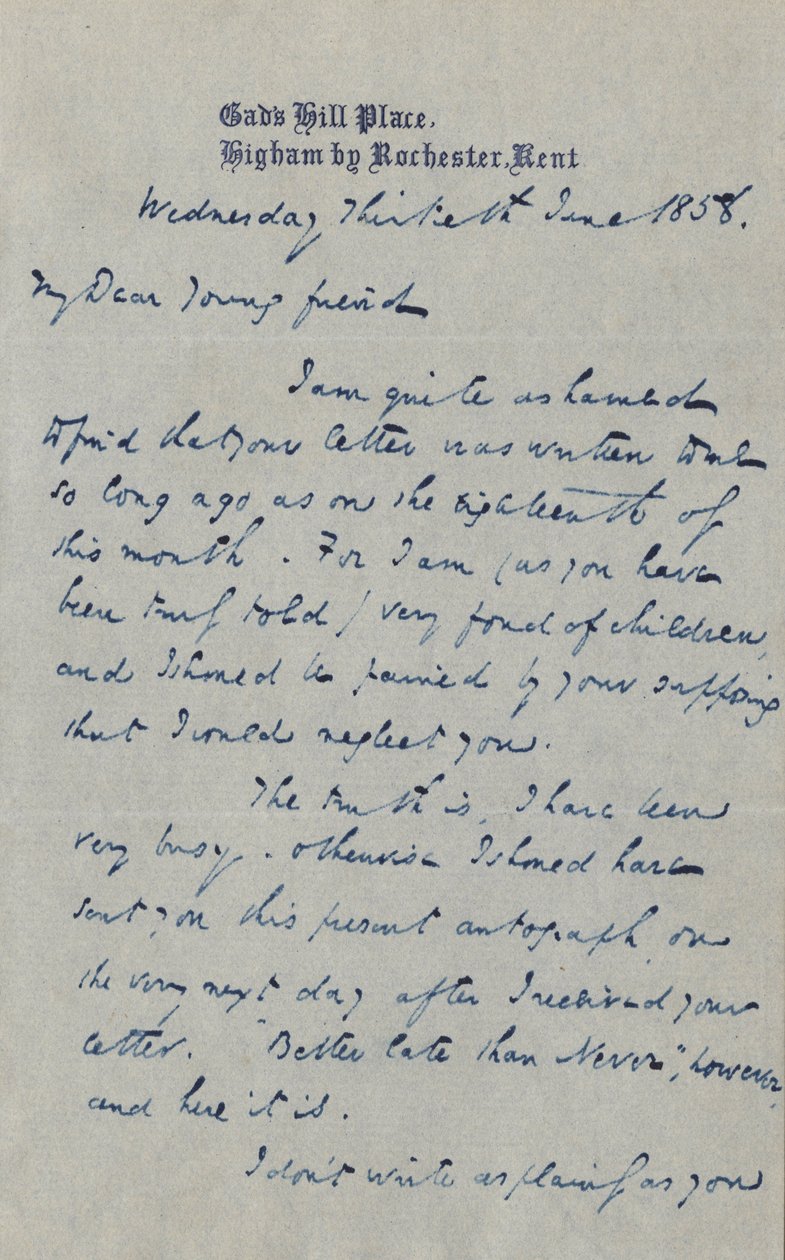 Gad's Hill Place,
Higham by Rochester, Kent
Wednesday Thirtieth June 1858.
My Dear Young friend
I am quite ashamed
to find that your letter was written to me
so long ago as on the Eighteenth of
this month. For I am (as you have
been truly told) very fond of children,
and I should be pained by your supposing
that I would neglect you.
The truth is, I have been
very busy. Otherwise I should have
sent you this present autograph on
the very next day after I received your
letter. "Better late than Never", however,
and here it is.
I don't write as plainly as you